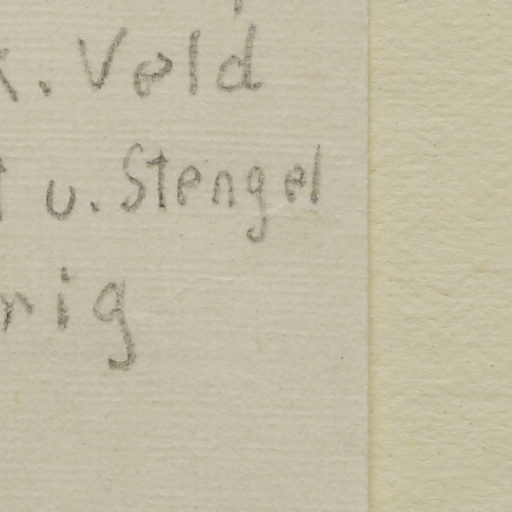 . Veld
u. Stengel
rig